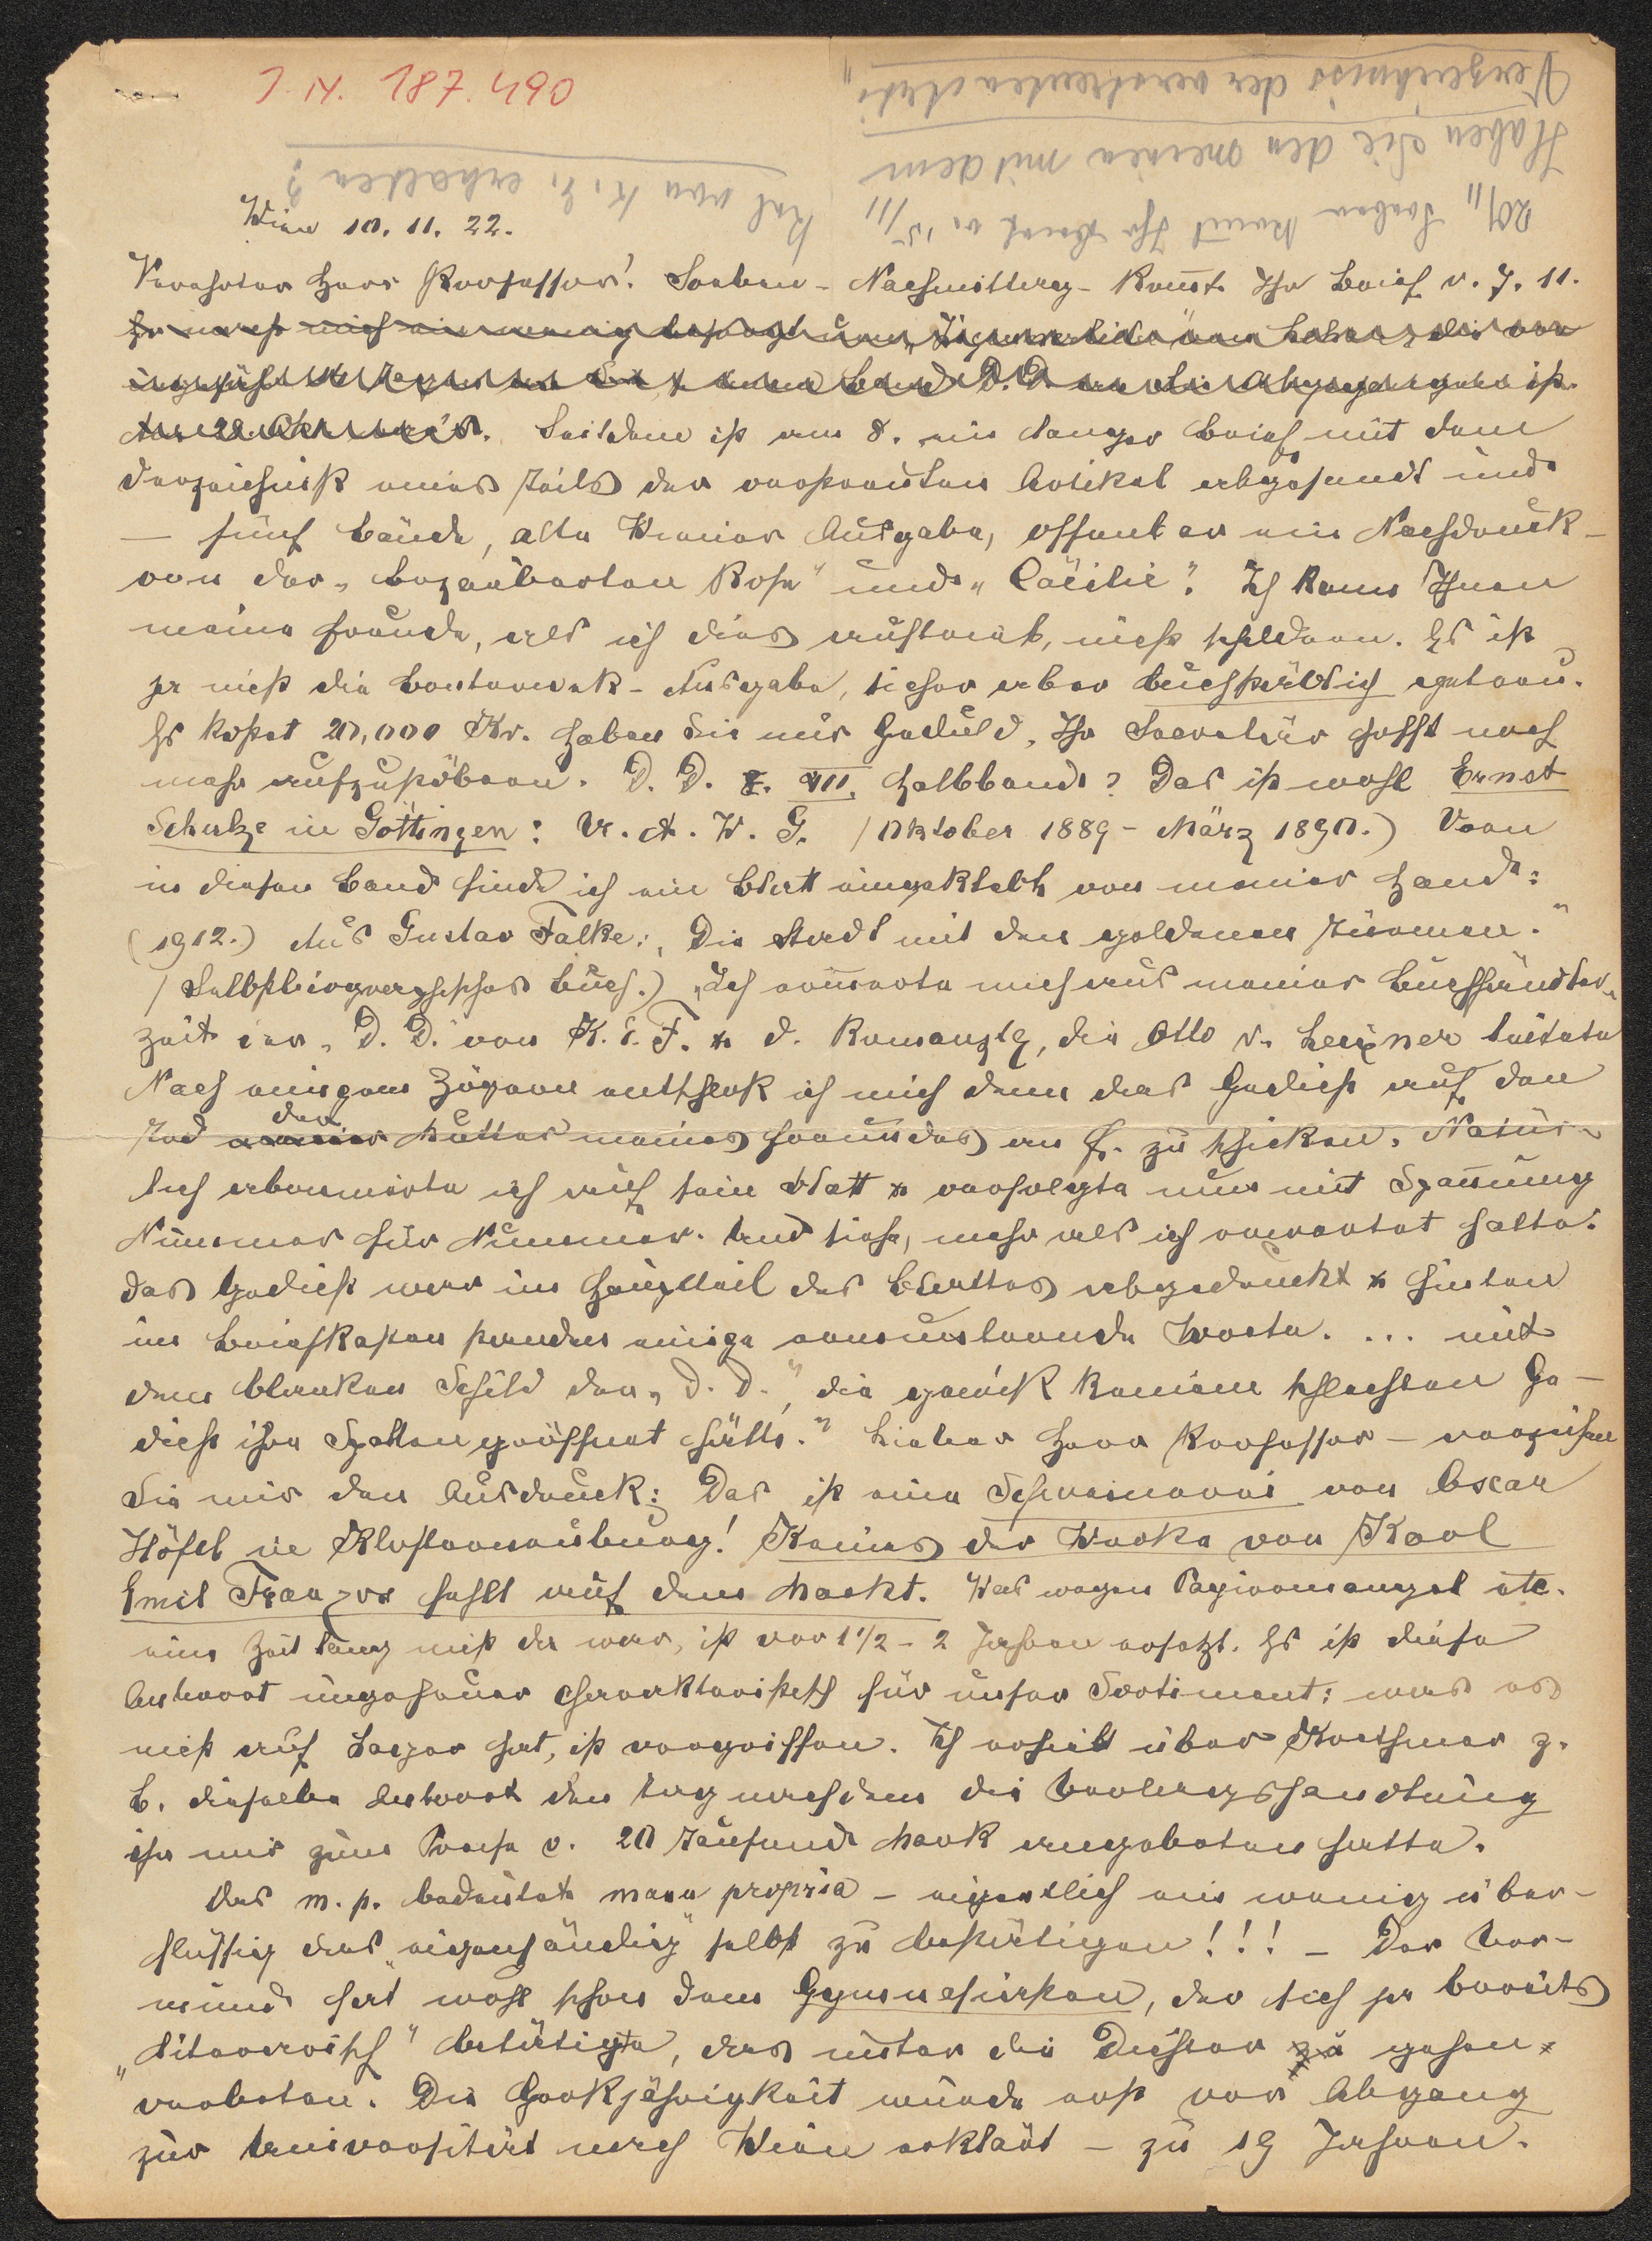 I. N. 187.490
Verzeichniss der verstreuten Arti-
Haben Sie den meinen mit dem
20/11 Soeben kam̄t Ihr Brief v. 15/11
kel von K. E. erhalten?
Wien 10. 11. 22.
Verehrter Herr Professor! Soeben - Nachmittag - kam̄t Ihr Brief v. 7. 11.
Seitdem ist am 8. ein langer Brief mit dem
Verzeichniß eines Teils der verstreuten Artikel abgesandt und
— fünf Bände, alte Wiener Ausgabe, offenbar ein Nachdruck -
von der „Bezauberten Rose" und „Cäcilie". Ich kann Ihnen
meine Freude, als ich dies auftrieb, nicht schildern. Es ist
ja nicht die Bouterwek-Ausgabe, sicher aber buchstäblich getreu.
Es kostet 20,000 Kr. Haben Sie nur Geduld, Ihr Secretär hofft noch
mehr aufzustöbern. D. D. VII. Halbband? Das ist wohl Ernst
Schulze in Göttingen: Vr. A. W. G. (Oktober 1889 - März 1890.) Vorn
in diesem Band finde ich ein Blatt eingeklebt von meiner Hand:
(1912.) Aus Gustav Falke: „Die Stadt mit den goldenen Türmen."
(Selbstbiographisches Buch.) „Ich erin̄erte mich aus meiner Buchhändler-
zeit der „D. D." von K. E. F. & d. Romanztg, die Otto v. Leixner leitete
Nach einigem Zögern entschloß ich mich denn das Gedicht auf den
Tod der Mutter meines Freundes an F. zu schicken. Natür-
lich abonnierte ich auf sein Blatt & verfolgte nun mit Span̄ung
Nummer für Nummer. Und siehe, mehr als ich erwartet hatte.
das Gedicht war im Hauptteil des Blattes abgedruckt & hinten
im Briefkasten standen einige ermunternde Worte. ... mit
dem blanken Schild der „D. D.", die gewiß keinem schlechten Ge-
dicht ihre Spalten geöffnet hätte." Lieber Herr Professor - verzeihen
Sie mir den Ausdruck: Das ist eine Schweinerei von Oscar
Höfel in Klosterneuburg! Keines der Werke von Karl
Emil Franzos fehlt auf dem Markt. Was wegen Papiermangel etc.
eine Zeit lang nicht da war, ist vor 1 1/2 - 2 Jahren ersetzt. Es ist diese
Antwort ungeheuer charakteristisch für unser Sortiment: was es
nicht auf Lager hat, ist vergriffen. Ich erhielt über z.
B. dieselbe Antwort den Tag nachdem die Verlagshandlung
ihn mir zum Preise v. 20 Tausend Mark angeboten hatte.
Das m. p. bedeutete manu propria - eigentlich ein wenig über-
flüssig das „eigenhändig" selbst zu bestätigen!!! - Der Vor-
mund hat wohl schon dem Gymnasiasten, der sich ja bereits
„literarisch" betätigte, das unter die Dichter gehen
verboten. Die Großjährigkeit wurde erst vor Abgang
zur Universität nach Wien erklärt - zu 19 Jahren.